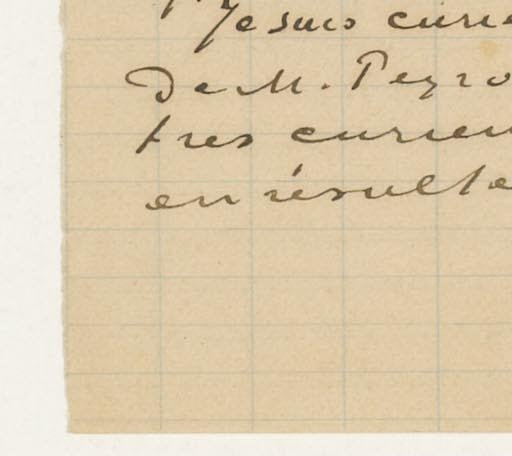 Je suis curie
De M. Peyro
tres curieu
en résulte